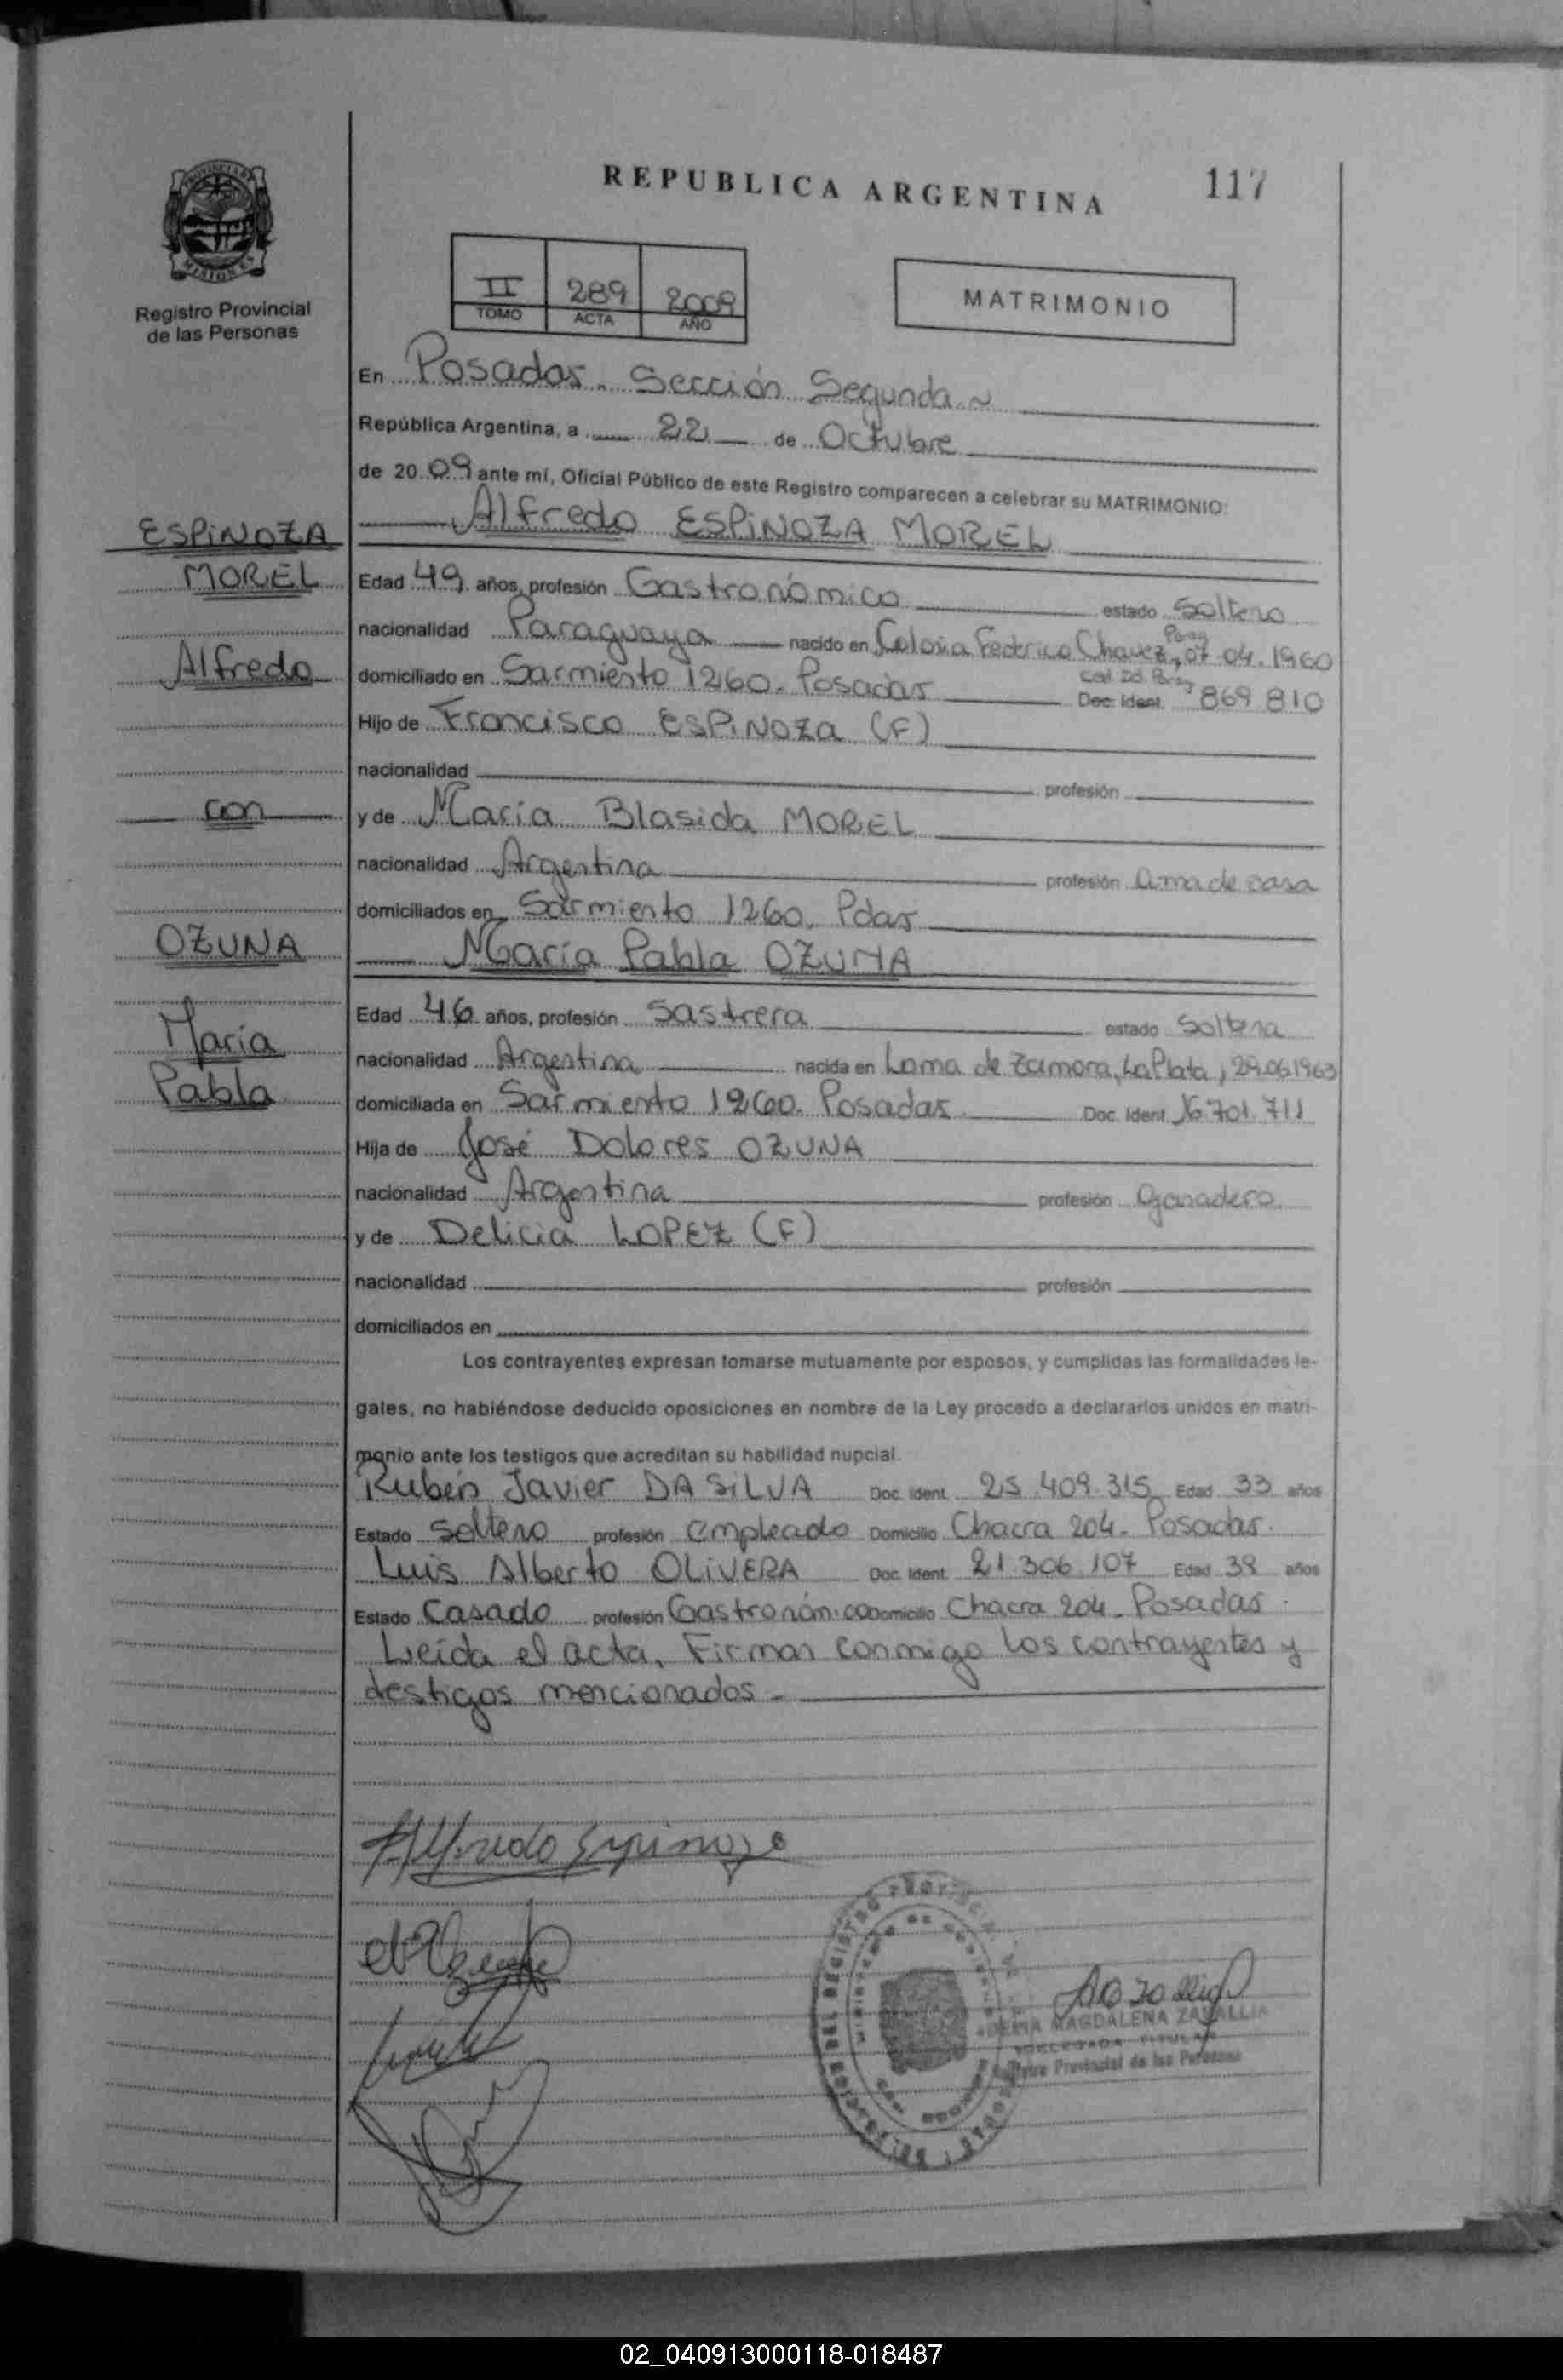 REPUBLICA ARGENTINA
117
PROVINCIA DE
MISIONES
Registro Provincial
de las Personas
II 289 2009
TOMO ACTA AÑO
MATRIMONIO
En Posadas. Sección Segunda
República Argentina, a 22 de Octubre
de 2009 ante mí, Oficial Público de este Registro comparecen a celebrar su MATRIMONIO:
ESPINOZA
MOREL
Alfredo
con
OZUNA
María
Pabla
Alfredo ESPINOZA MOREL
Edad 49 años, profesión Gastronómico estado Soltero
nacionalidad Paraguaya nacido en Colonia Federico Chavez, Parag 07.04.1960
domiciliado en Sarmiento 1260. Posadas Ced. Id. Parag Doc. Ident. 869 810
Hijo de Francisco ESPINOZA (F)
nacionalidad profesión
y de María Blasida MOREL
nacionalidad Argentina profesión ama de casa
domiciliados en Sarmiento 1260. Pdas
María Pabla OZUNA
Edad 46 años, profesión Sastrera estado Soltera
nacionalidad Argentina nacida en Loma de Zamora, La Plata, 29.06.1963
domiciliada en Sarmiento 1260. Posadas Doc. Ident. 16.701.711
Hija de José Dolores OZUNA
nacionalidad Argentina profesión ganadero
y de Delicia LOPEZ (F)
nacionalidad profesión
domiciliados en
Los contrayentes expresan tomarse mutuamente por esposos, y cumplidas las formalidades le-
gales, no habiéndose deducido oposiciones en nombre de la Ley procedo a declararlos unidos en matri-
monio ante los testigos que acreditan su habilidad nupcial.
Rubén Javier DA SILVA Doc. Ident. 25.409.315 Edad 33 años
Estado Soltero profesión empleado Domicilio Chacra 204- Posadas.
Luis Alberto OLIVERA Doc. Ident. 21.306.107 Edad 38 años
Estado Casado profesión Gastronómico Domicilio Chacra 204- Posadas.
Leída el acta, Firman conmigo los contrayentes y
testigos mencionados-
Alfredo Espinoza
MAGDALENA
DELEGADA TITULAR
Registro Provincial de las Personas
02_040913000118-018487